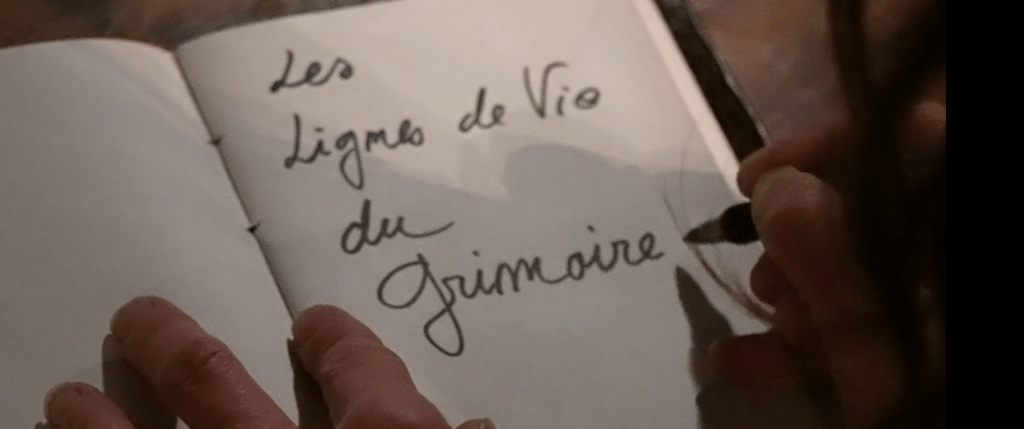 Les
Lignes de Vie
du
Grimoire